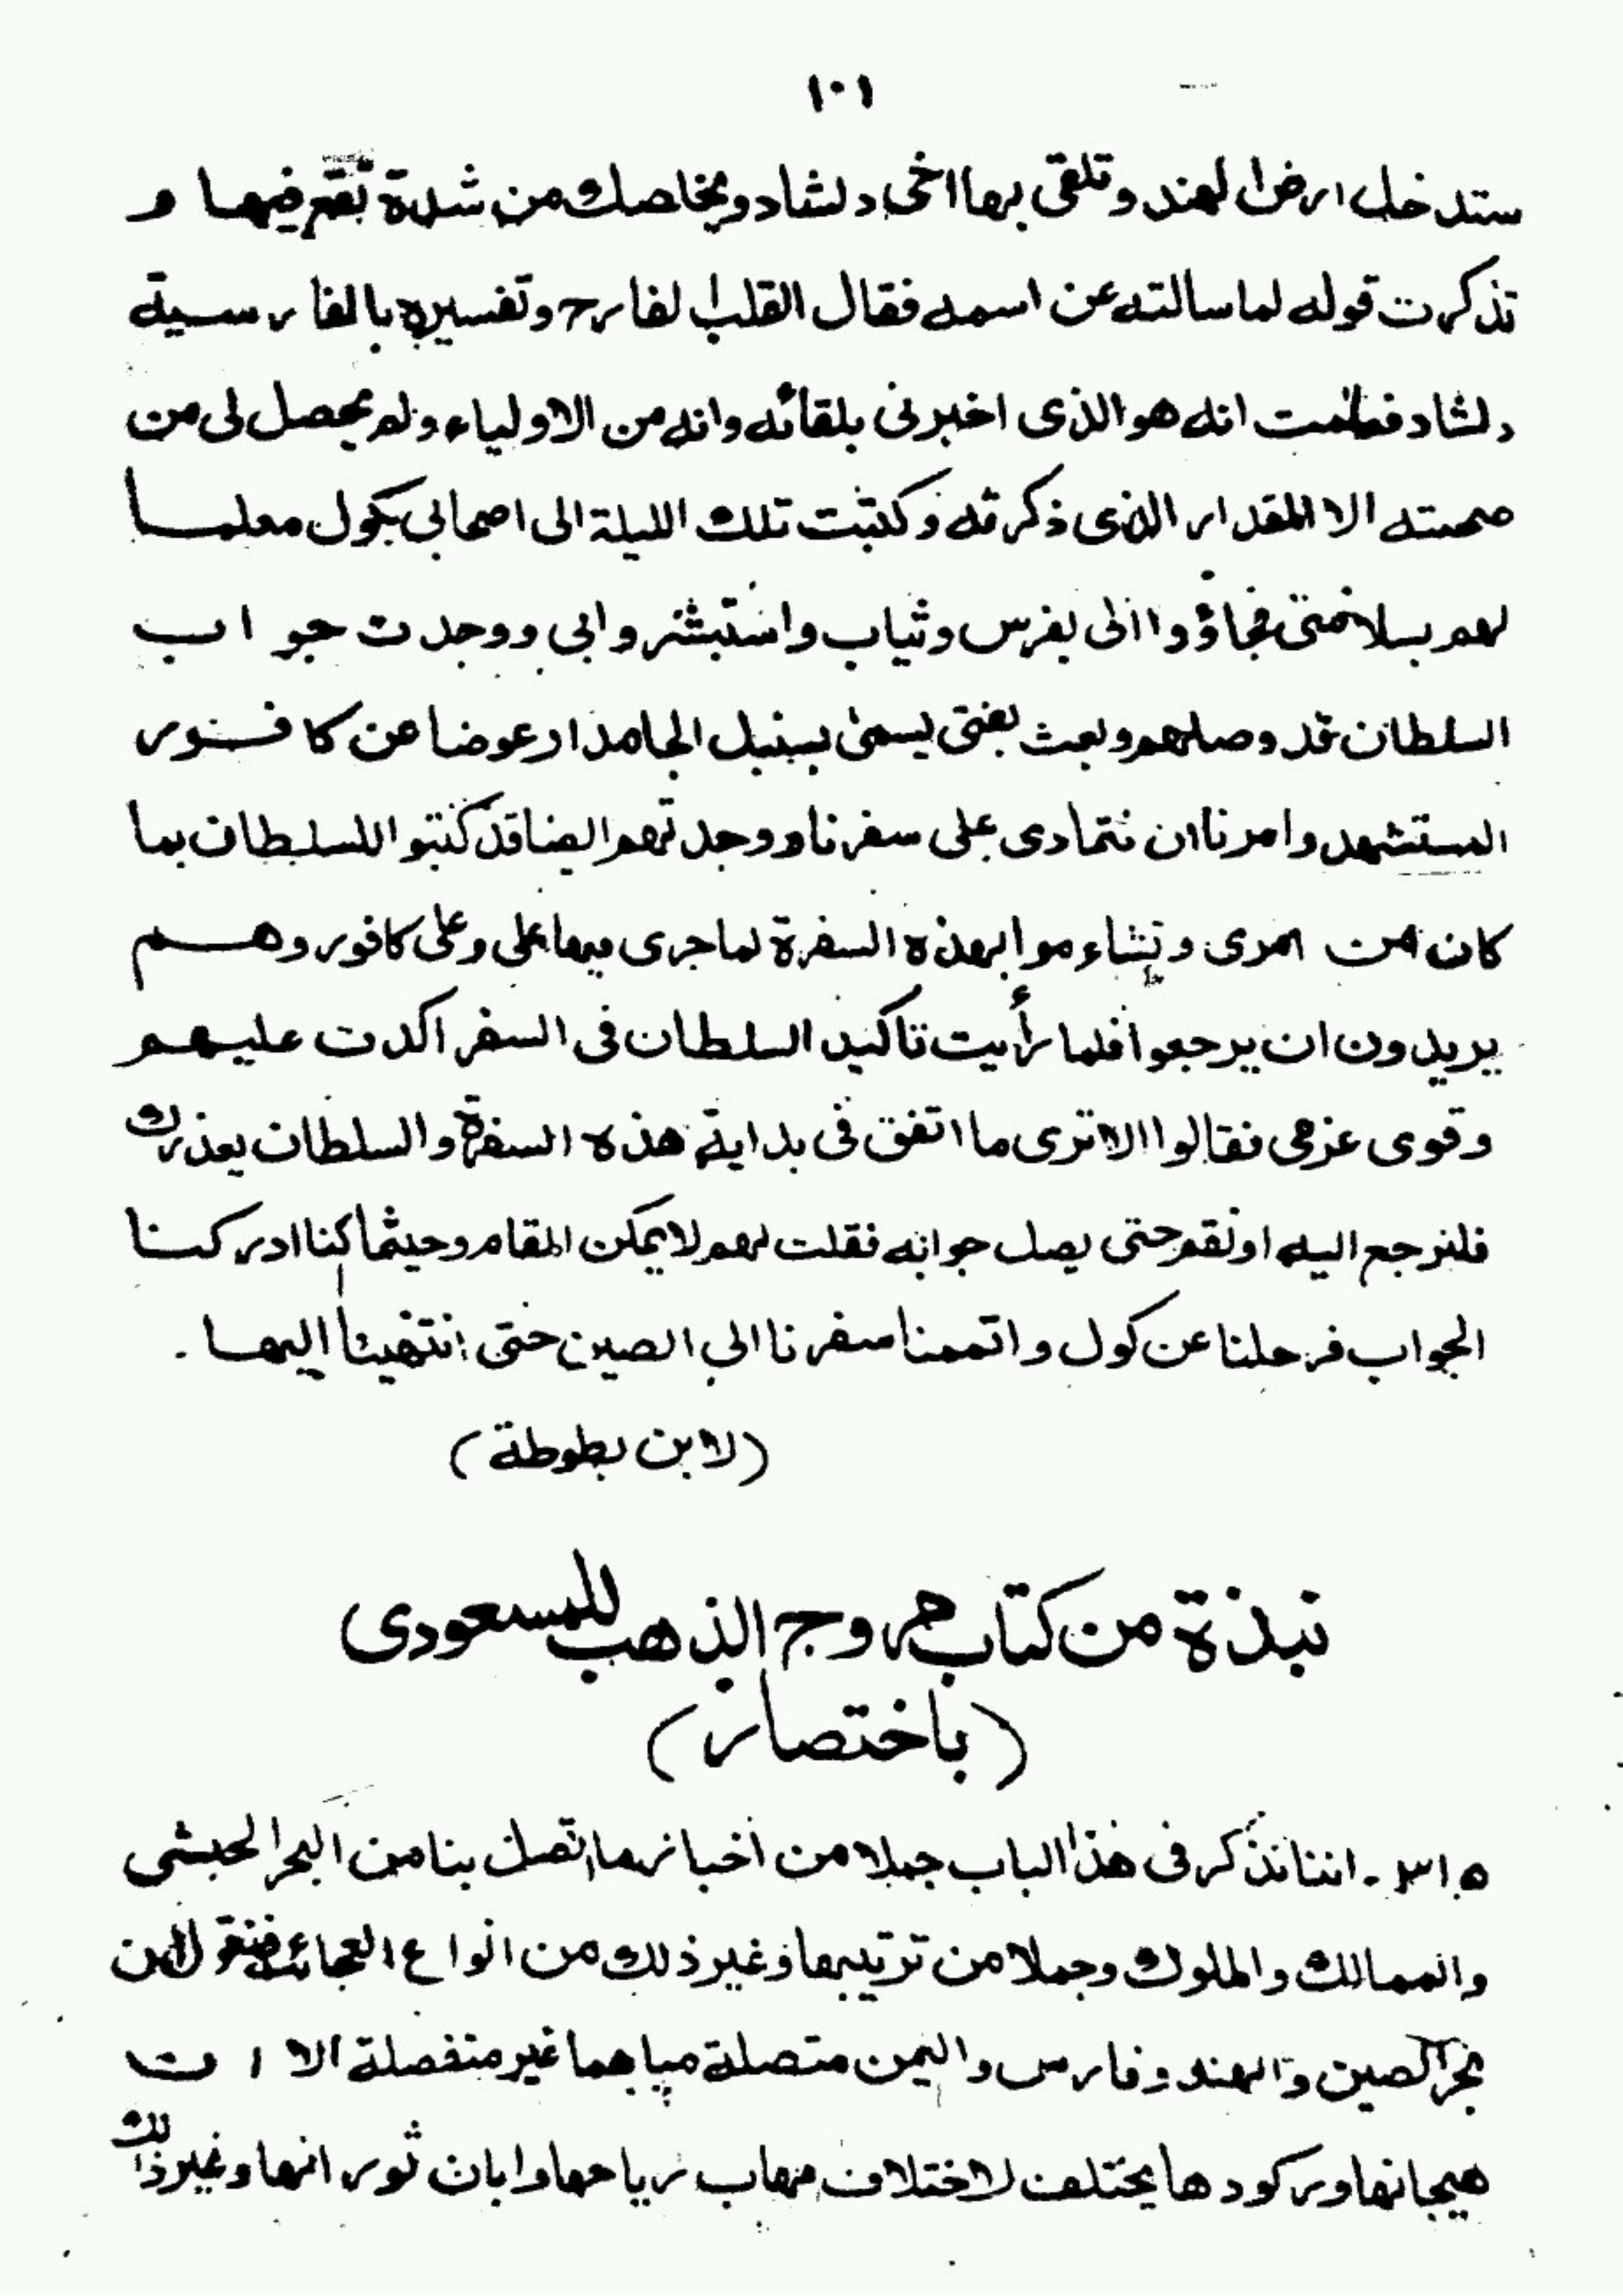 ١٠١
ستدخل ارض الهند وتلقى بها اخى دلشاد ويخلصك من شدة تقع فيها و
تذكرت قوله لما سالته عن اسمه فقال القلب الفارح وتفسيره بالفارسية
دلشاد فعلمت انه هو الذى اخبرنى بلقائه وانه من الاولياء ولم يحصل لى من
صحبته الا المقدار الذى ذكرته وكتبت تلك الليلة الى اصحابى بكول معلما
لهم بسلامتى فجاؤوا الى بفرس وثياب واستبشروا بى ووجدت جواب
السلطان قد وصلهم وبعث بفتى يسمى بسنبل الجامدار عوضا عن كافور
المستشهد وامرنا ان نتمادى على سفرنا ووجدتهم ايضا قد كتبوا للسلطان بما
كان من امرى وتشاءموا بهذه السفرة لما جرى فيها على وعلى كافور وهم
يريدون ان يرجعوا فلما رأيت تاكيد السلطان فى السفر اكدت عليهم
وقوى عزمى فقالوا الا ترى ما اتفق فى بداية هذه السفرة والسلطان يعذرك
فلنرجع اليه او نقم حتى يصل جوابه فقلت لهم لا يمكن المقام وحيثما كنا ادركنا
الجواب فرحلنا عن كول واتممنا سفرنا الى الصين حتى انتهينا اليها .
(لابن بطوطة)
نبذة من كتاب مروج الذهب للمسعودى
(باختصار)
٣١٥ . اننا نذكر فى هذا الباب جملا من اخبار ما اتصل بنا من البحر الحبشى
والممالك والملوك وجملا من ترتيبها وغير ذلك من انواع العجائب فنقول ان
بحر الصين والهند وفارس واليمن متصلة مياهها غير منفصلة الا ان
هيجانها وركودها يختلف لاختلاف مهاب رياحها وابان ثورانها وغير ذالك